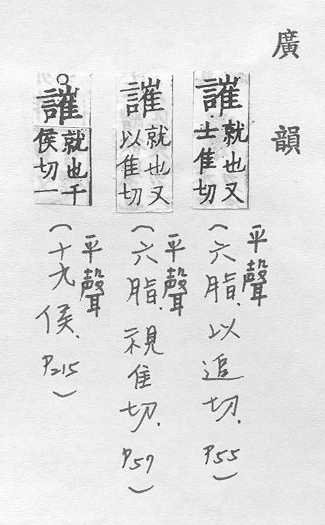 廣韻
誰 就也又士隹切
平聲
(六脂.以追切.P55)
誰 就也又以隹切
平聲
(六脂.視隹切.P59)
○誰 就也千侯切一
平聲
(十九侯.P215)